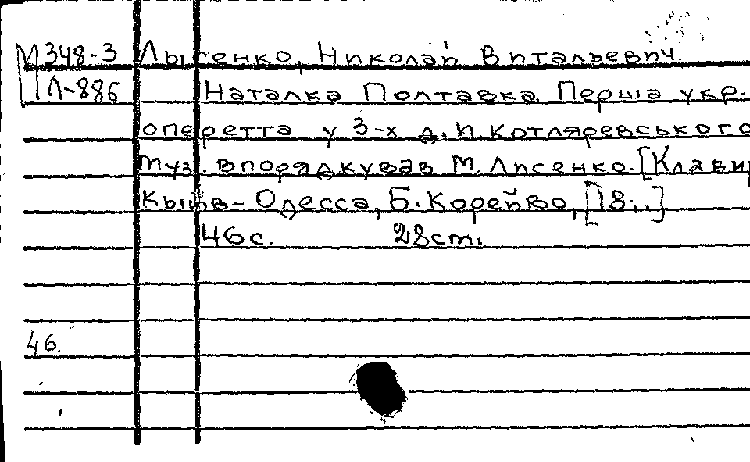 М 348-3 Лысенко, Николай Витальевич
Л-886 Наталка Полтавка. Перша укр.
оперетта у 3-х д. И. Котляревського
Муз. впорядкував М. Лисенко. [Клавир
Кыив-Одесса, Б. Корейво, [18..]
46 с. 28 cm.
46.